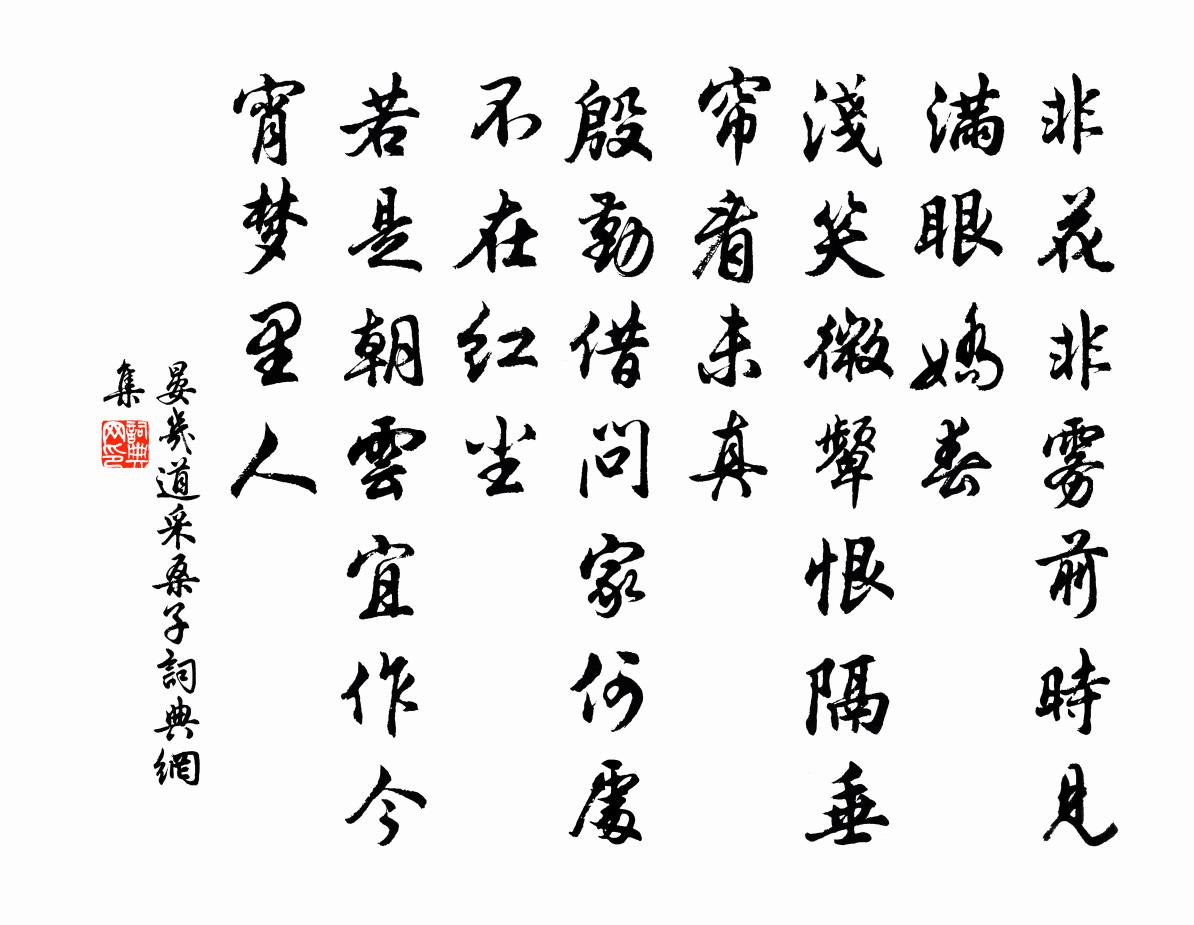 非花非雾前時見
满眼嬌春
淺笑微顰恨隔垂
帘看未真
殷勤借问家何處
不在红尘
若是朝雲宜作今
宵梦里人
晏幾道采桑子詞典網
集
詞典
网印